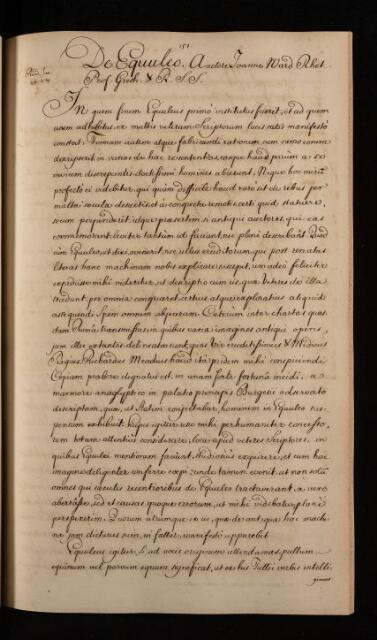 151
De Equuleo. Auctore Joanne Ward Rhet.
Prof. Gresh. & R. S. S.
In quem finem Equuleus primò institutus fuerit, et ad quem
usum adhibitus, ex multis veterum Scriptorum locis satis manifestò
constat. Formam autem atque fabricandi rationem cum nemo eorum
descripserit, in varias de hac re sententias, easque haud parum a se
invicem discrepantes doctissimi homines abierunt. Neque hoc mirum
profectò ei videbitur, qui quàm difficile haud rarò sit de rebus per
multa secula desuetis et à conspectu remotis certi quid statuere,
secum perpenderit: idque praesertim, si antiqui auctores, qui eas
commemorant, leviter tantùm id faciant, nec plenè describant. Quod
cùm Equuleo, ut dixi, evenerit; nec ullus eruditorum, qui post renatas
literas hanc machinam nobis explicare suscepit, in adeò feliciter
expedisse mihi videretur, ut descriptio cum iis, quae Veteres de illa
tradunt, per omnia congrueret; certius atque exploratius aliquid
assequendi spem omnem abjeceram. Caeterum inter chartas quas-
dam Româ transmissas, in quibus variae imagines antiqui operis,
jam illic extantis, delineatae sunt, quas Vir eruditissimus & Medicus
Regius, Richardus Meadius, haud ità pridem mihi conspiciendi
Copiam praebere dignatus est, in unam fortè fortunâ incidi, a
marmore anaglyptico in palatio principis Burgesii asservato
descriptam, quae, ut statim conjectabar, hominem in Equuleo sus-
pensum exhibuit. Hujus igitur usu mihi perhumaniter concesso,
rem totam attentiùs considerare, locos apud veteres Scriptores, in
quibus Equulei mentionem faciunt, studiosiùs exquirere, et cum hac
imagine diligenter conferre coepi: unde tandem evenit, ut non solùm
omnes qui saeculis recentioribus de Equuleo tractaverant, a vero
aberrasse, sed et causas quoque errorum, ut mihi videbatur, planè
perspexerim. Quorum utrumque ex iis, quae de antiqua hac machi-
na jam dicturus sum, ni fallor, manifestò apparebit.
Equuleus igitur, si ad vocis originem attendamus, pullum
equinum vel parvum equum significat, ut ex his Tullii verbis intelli-
gimus